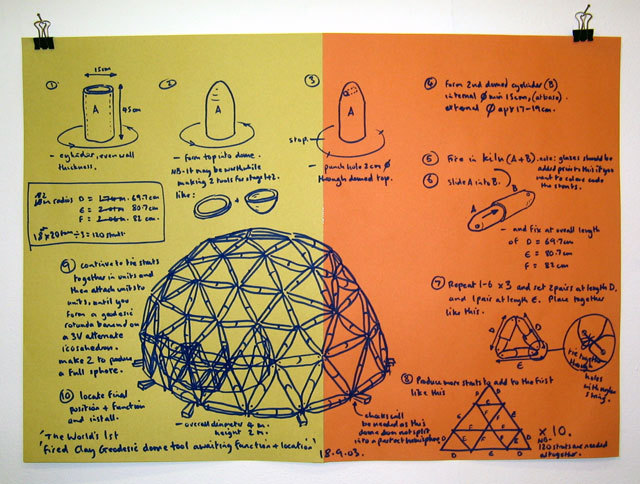 ①
15cm
45cm
A
- cylinder, even wall
thickness.
②
A
- form top into dome.
NB. It may be worthwhile
making 2 tools for stages 1+2.
like:
+
③
A
stop.
- punch hole 3 cm Ø
through domed top.
④ Form 2nd domed cylinder (B)
internal Ø min 15cm, (at base).
external Ø apr 17-19cm.
⑤ Fire in kiln (A+B). note: glazes should be
added prior to this if you
want to colour code
the struts.
⑥ Slide A into B.
B
A
- and fix at overall length
of D = 69.7cm
E = 80.7cm
F = 82cm
radius D = 69.7cm
E = 80.7cm
F = 82.cm
÷ 5 = 120 struts
⑦ Repeat 1-6 x3 and set 2 pairs at length D,
and 1 pair at length E. Place together
like this.
D
D
E
tie together
through
holes
with nylon
string.
⑧ Produce more struts to add to the first
like this
D D
E
D F F D
E F E
D D
x 10.
NB-
120 struts are needed
altogether.
⑨ continue to tie struts
together in units and
then attach units to
units, until you
form a geodesic
rotunda based on
a 3V alternate
icosahedron.
make 2 to produce
a full sphere.
⑩ locate final
position + function
and install.
- overall diameter 4 m.
height 2 m.
chocks will
be needed as this
dome does not split
into a perfect hemisphere
'The World's 1st
Fired Clay Geodesic dome tool awaiting function + location'
18.9.03.